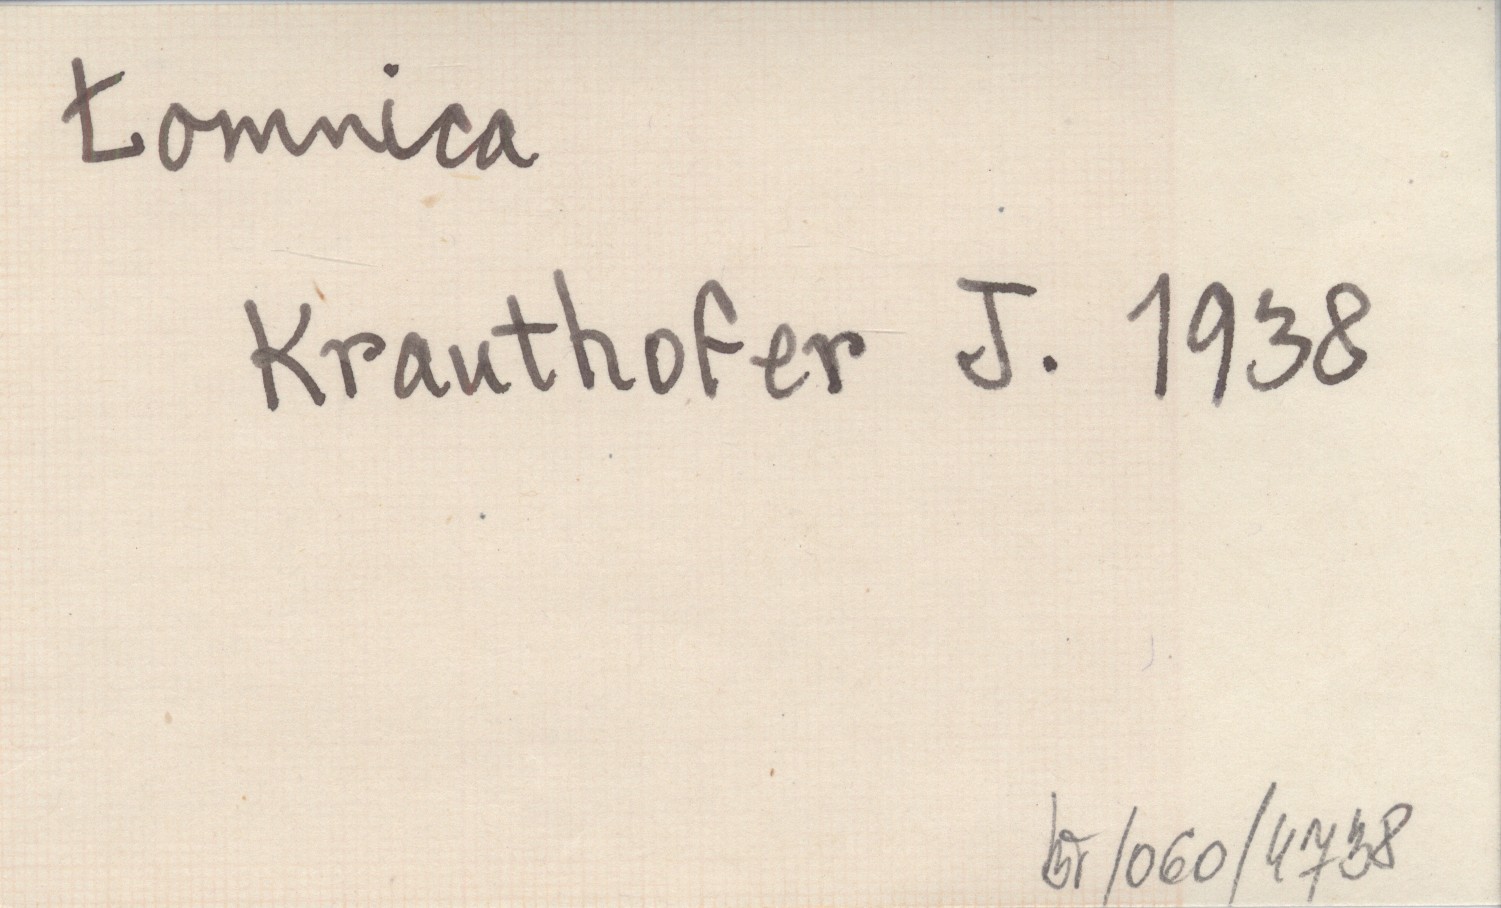 Łomnica
Krauthofer J. 1938
br/060/4738